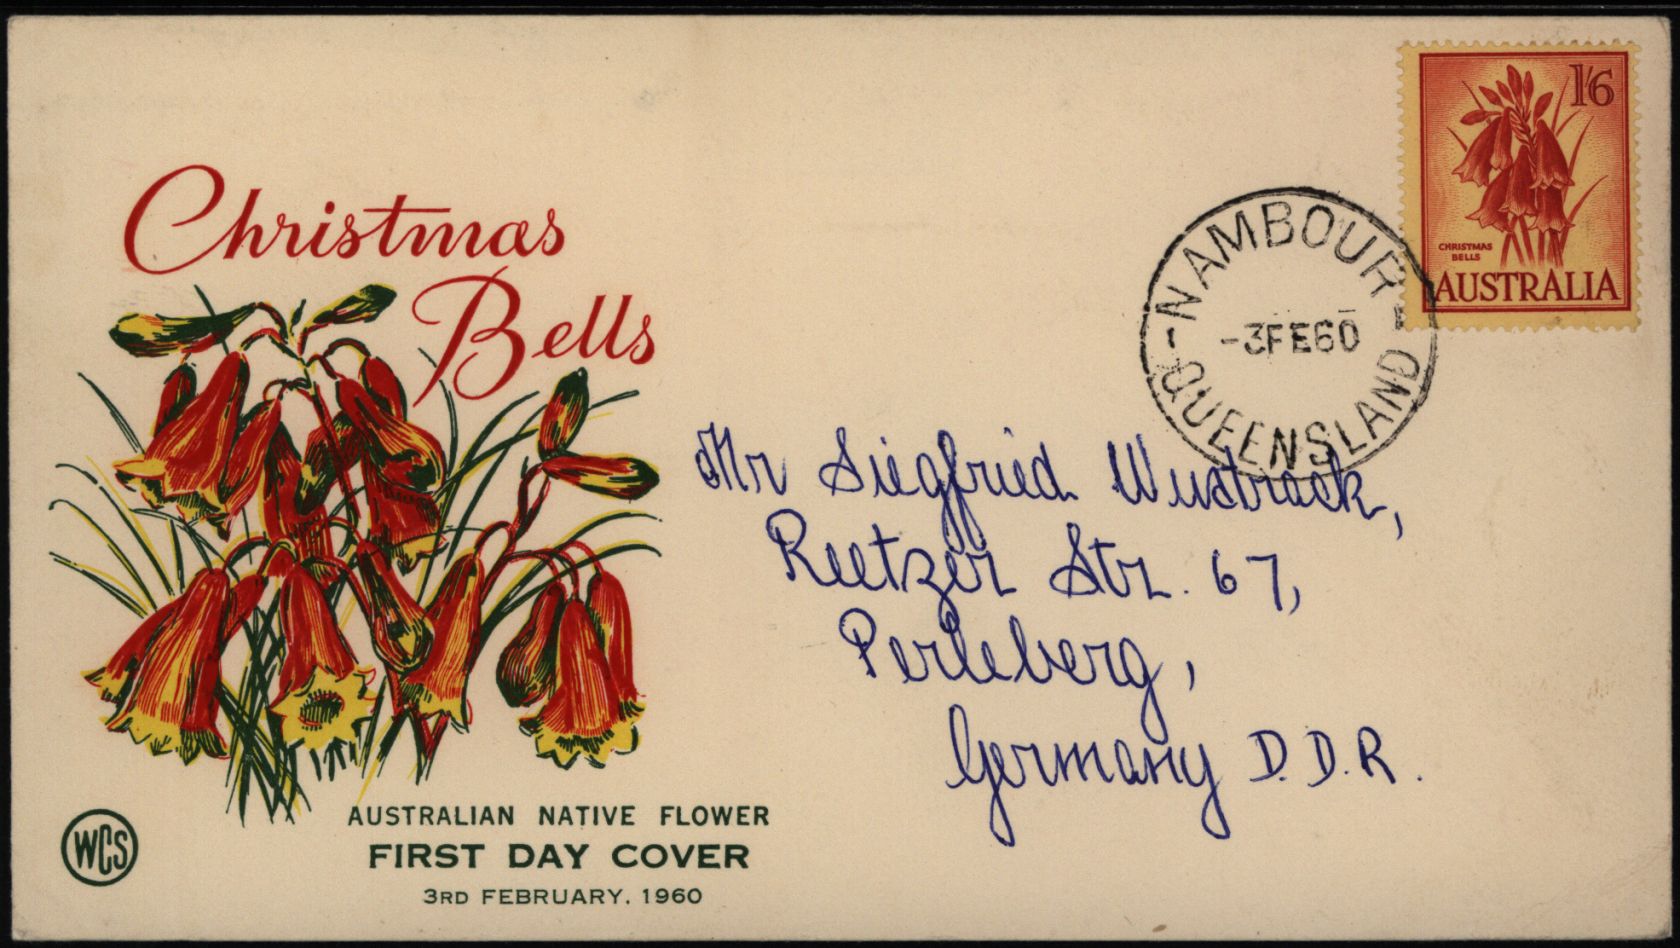 Christmas
Bells
1/6
CHRISTMAS
BELLS
AUSTRALIA
NAMBOUR
-3FE60
QUEENSLAND
Mr Siegfried
Reetzer Str. 67,
Perleberg,
Germany D.D.R.
WCS
AUSTRALIAN NATIVE FLOWER
FIRST DAY COVER
3RD FEBRUARY, 1960